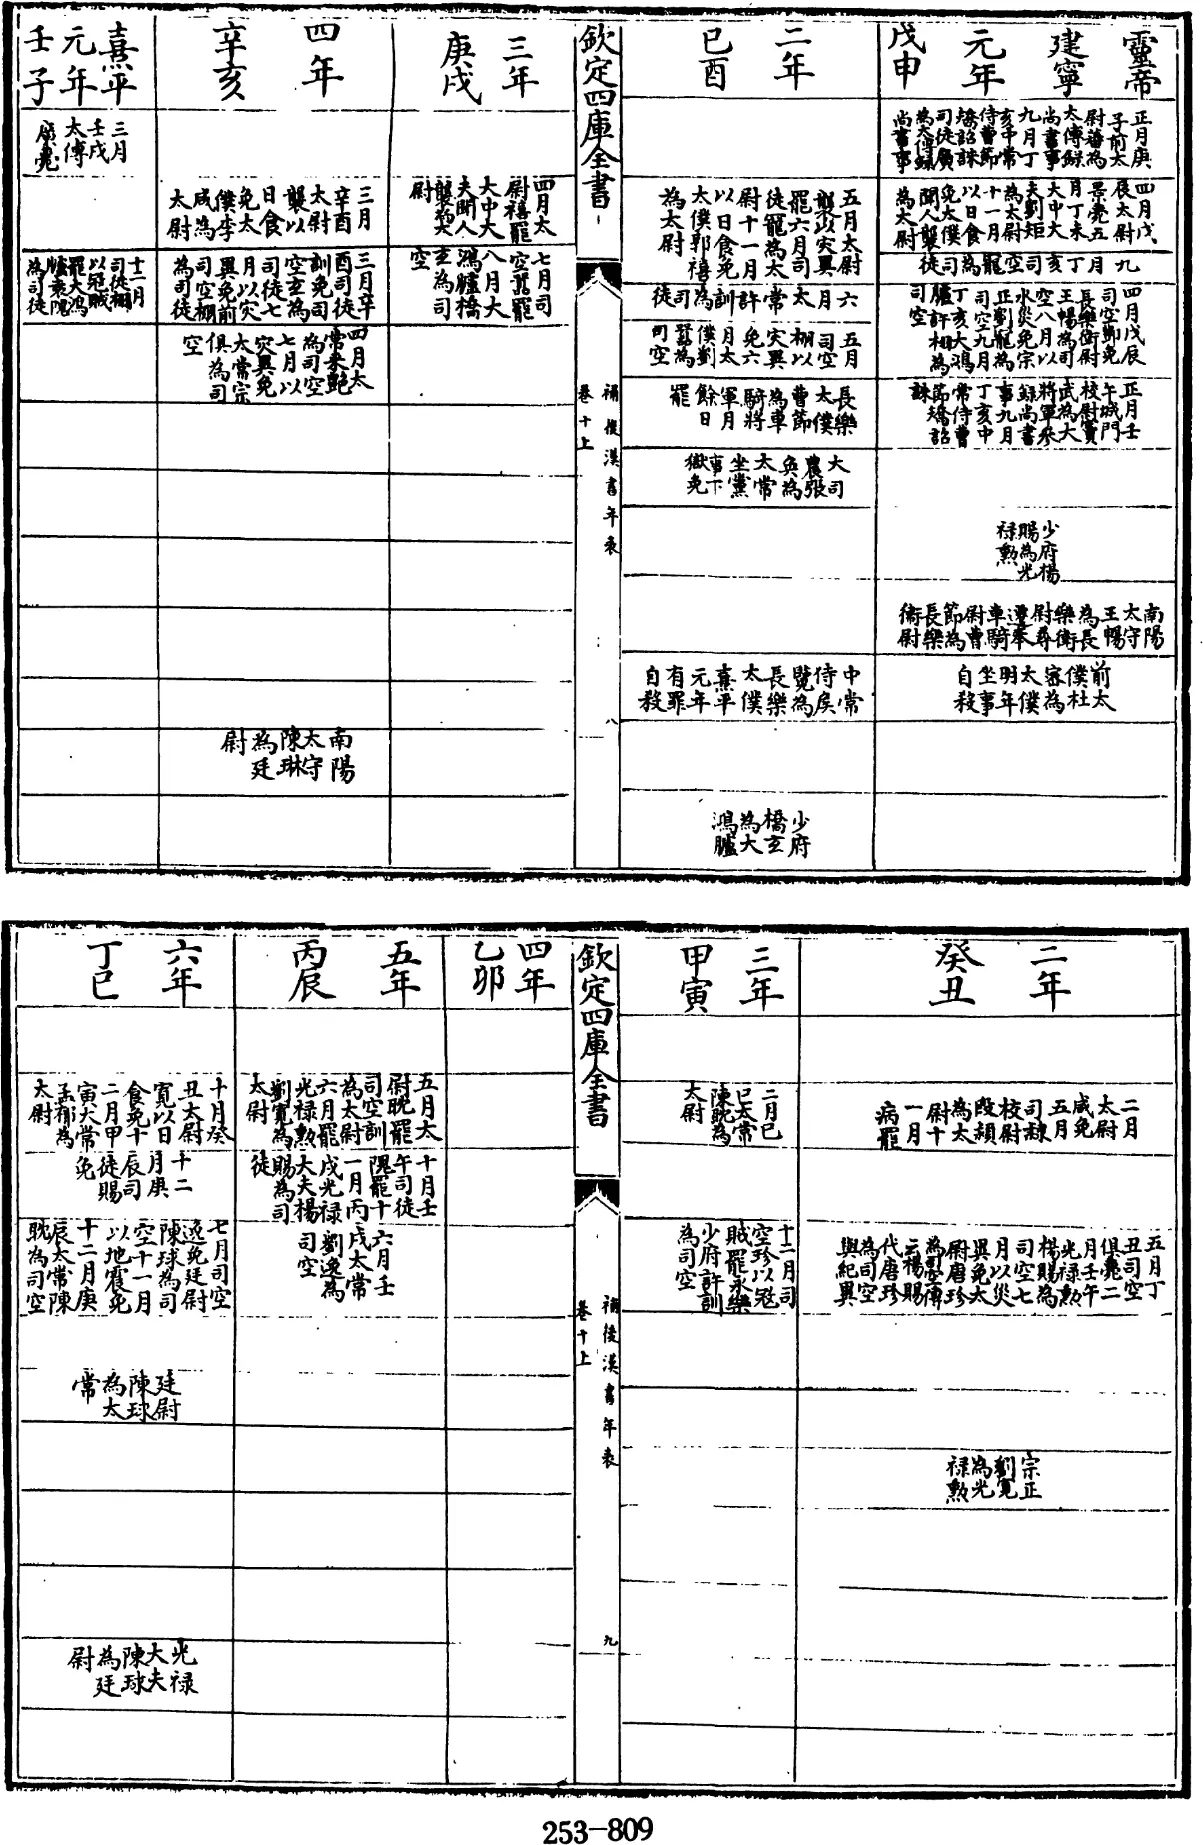 靈帝
建寧
元年
戊申
正月庚
子前太
尉蕃為
太傅錄
尚書事
九月丁
亥中常
侍曹節
矯詔誅
司徒廣
為太傅錄
尚書事
四月戊
辰太尉
景薨五
月丁未
大中大
夫劉矩
為太尉
十一月
以日食
免太僕
聞人襲
為太尉
九月丁亥司空寵為司徒
四月戊辰
司空免
長樂衛尉
王暢為司
空八月以
水災免宗
正劉寵為
司空九月
丁亥大鴻
臚許相為
司空
正月壬
午城門
校尉竇
武為大
將軍參
錄尚書
事九月
丁亥中
常侍曹
節矯詔
誅
少府楊
賜為光
祿勲
南陽
太守
王暢
為長
樂衛
尉尋
遷奉
車騎
尉曹
節為
長樂
衛尉
前太
僕杜
密為
太僕
明年
坐事
自殺
二年
己酉
五月太尉
襲以災異
罷六月司
徒寵為太
尉十一月
以日食免
太僕郭禧
為太尉
六月太常許訓為司徒
五月
司空
栩以
災異
免六
月太
僕劉
囂為
司空
長樂
太僕
曹節
為車
騎將
軍月
餘日
罷
大司
農張
奐為
太常
坐黨
事下
獄免
中常
侍侯
覽為
長樂
太僕
熹平
元年
有罪
自殺
少府
橋玄
為大
鴻臚
欽定四庫全書
補後漢書年表
卷十上
八
三年
庚戌
四月太
尉禧罷
大中大
夫聞人
襲為太
尉
七月司
空囂罷
八月大
鴻臚橋
玄為司
空
四年
辛亥
三月
辛酉
太尉
襲以
日食
免太
僕李
咸為
太尉
三月辛
酉司徒
訓免司
空玄為
司徒七
月以災
異免前
司空栩
為司徒
四月太
常來艷
為司空
七月以
災異免
太常宗
俱為司
空
南陽
太守
陳琳
為廷
尉
熹平
元年
壬子
三月
壬戌
太傅
廣薨
十二月
司徒栩
以寇賊
罷大鴻
臚袁隗
為司徒
二年
癸丑
二月
太尉
咸免
五月
司隸
校尉
段熲
為太
尉十
一月
病罷
五月丁
丑司空
俱薨二
月壬午
光祿勲
楊賜為
司空七
月以災
異免太
尉唐珍
為司空傳
云楊賜
代唐珍
為司空
與紀異
宗正
劉寬
為光
祿勲
三年
甲寅
二月己
巳太常
陳耽為
太尉
十二月司
空珍以冦
賊罷永樂
少府許訓
為司空
欽定四庫全書
補後漢書年表
卷十上
九
四年
乙卯
五年
丙辰
五月太
尉耽罷
司空訓
為太尉
六月罷
光祿勲
劉寬為
太尉
十月壬
午司徒
隗罷十
一月丙
戌光祿
大夫楊
賜為司
徒
六月壬
戌太常
劉逸為
司空
六年
丁巳
十月癸
丑太尉
寬以日
食免十
二月甲
寅大常
孟郁為
太尉
十二
月庚
辰司
徒賜
免
七月司空
逸免廷尉
陳球為司
空十一月
以地震免
十二月庚
辰太常陳
耽為司空
廷尉
陳球
為太
常
光祿
大夫
陳球
為廷
尉
253-809